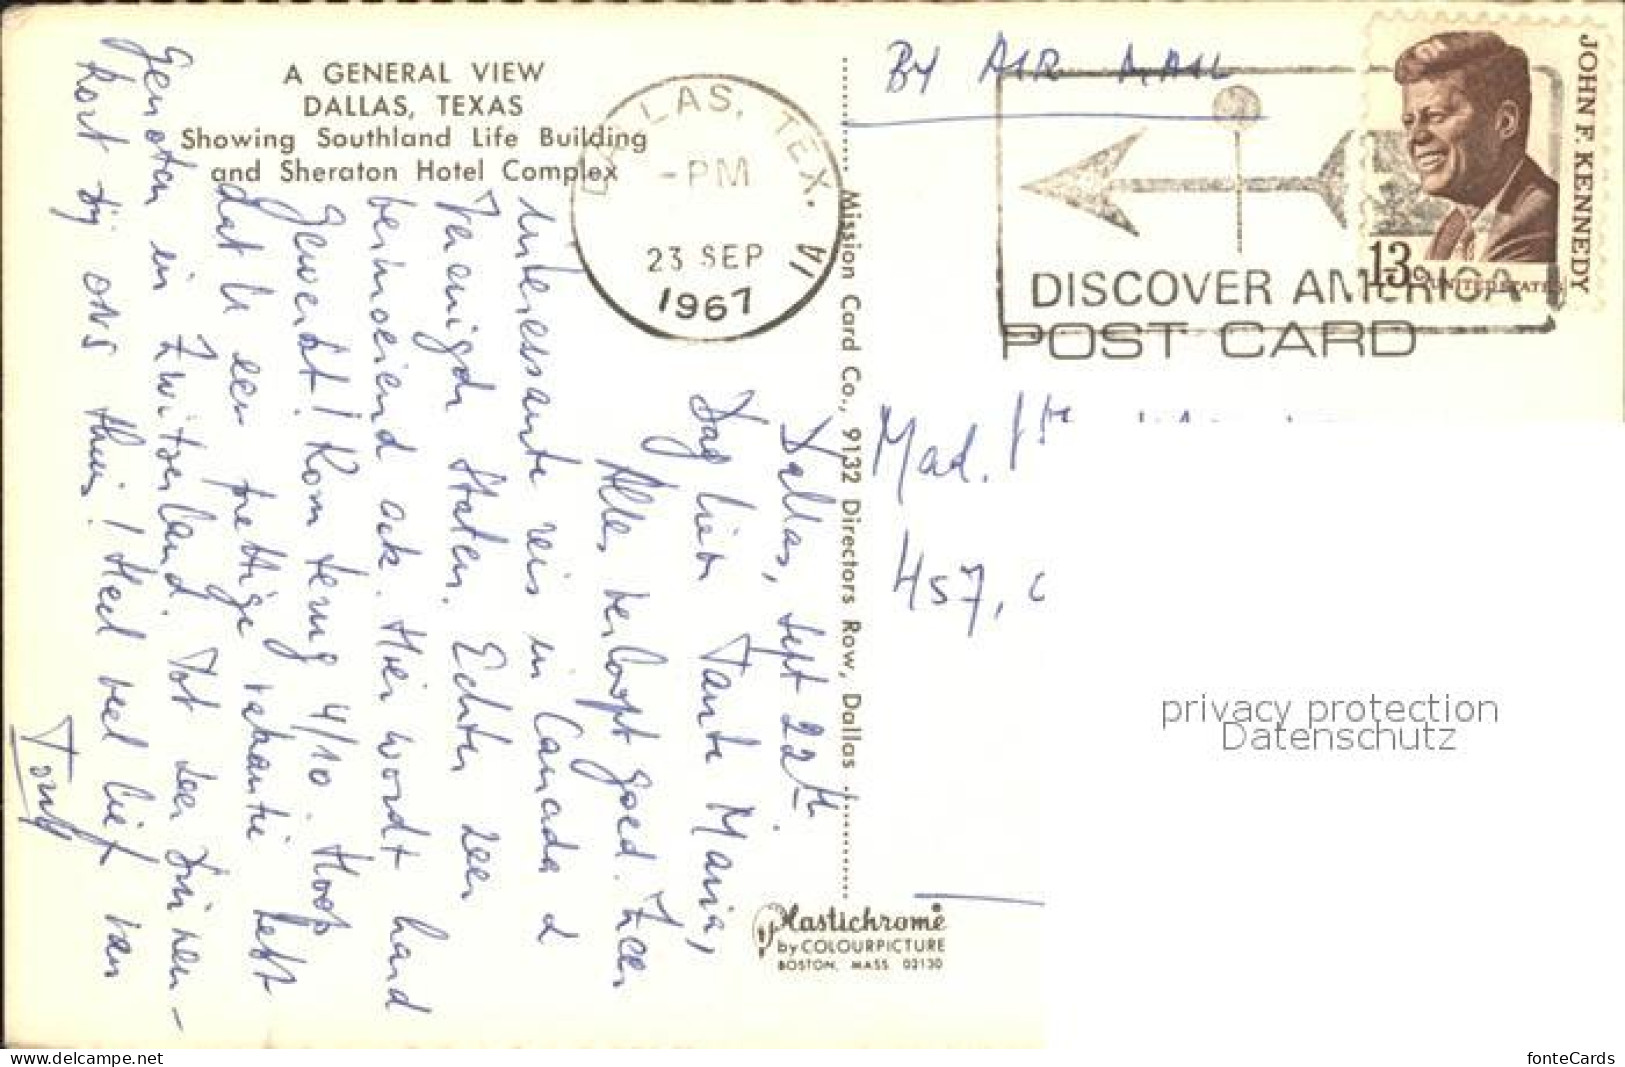 A GENERAL VIEW
DALLAS, TEXAS
Showing Southland Life Building
and Sheraton Hotel Complex
DALLAS, TEX.
-PM
23 SEP
1967
BY AIR MAIL
JOHN F. KENNEDY
13c UNITED STATES
DISCOVER AMERICA
POST CARD
Mission Card Co., 9132 Directors Row, Dallas
Dallas, Sept 22th.
Dag lieve Tante Maria,
Alles verloopt goed. Zeer
interessante reis in Canada &
Verenigde Staten. Echter zeer
vermoeiend ook. Hier wordt hard
gewerkt! Kom terug 4/10. Hoop
dat U een prettige vakantie hebt
genoten in Zwitserland. Tot zeer binnen-
kort bij ons thuis! Heel veel liefs van
Tony
Mad.
457,
Plastichrome®
by COLOURPICTURE
BOSTON, MASS. 02130
privacy protection
Datenschutz
www.delcampe.net
fonteCards